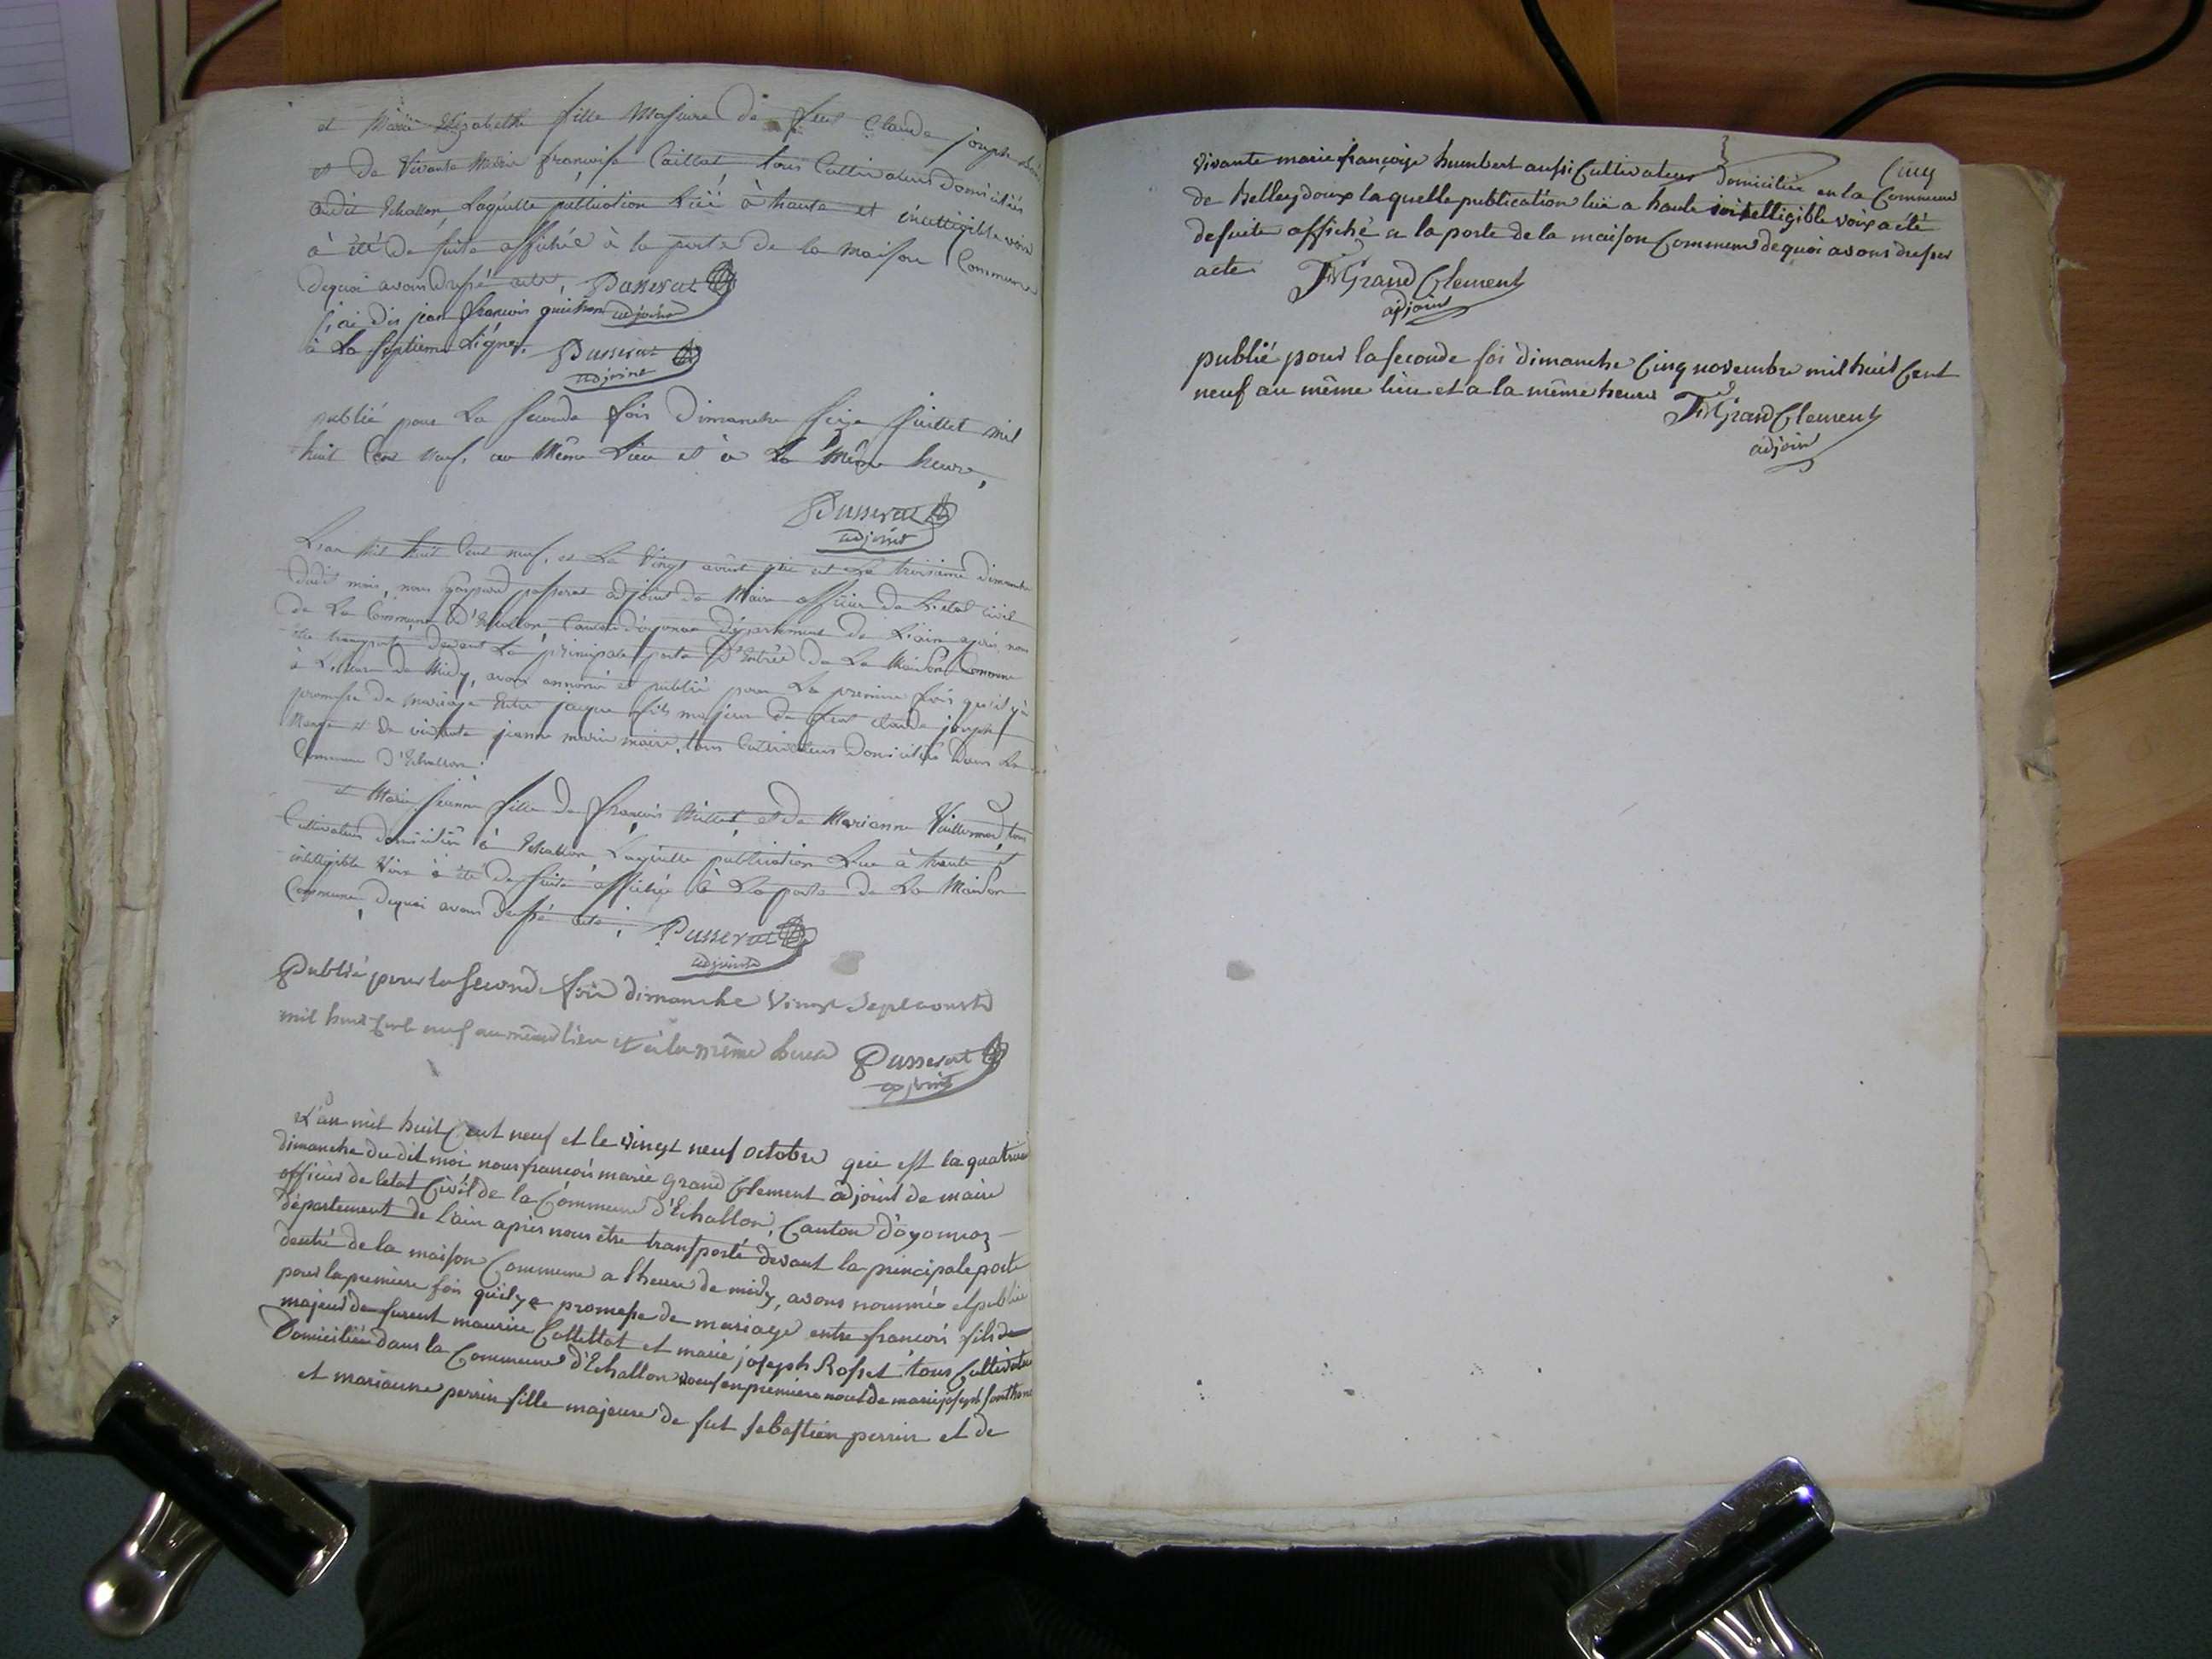 et Marie Elizabeth fille Majeure de feus Claude joseph
et de Vivante Marie françoise Caillat, tous Cultivateurs Domiciliés
audit Echallon, Laquelle publication Lüe à haute et intelligible voix
à été De suite affichée à la porte de la maison Commune
Dequoi avons Dressé acte, Passerat
adjoint
j'ai dis jean françois
à La septieme Ligne. Passerat
adjoint
publié pour La seconde fois Dimanche seize juillet mil
huit Cent neuf, au Même Lieu et à La Même heure,
Passerat
adjoint
L'an mil huit Cent neuf, et Le Vingt aoust qui est Le troisieme Dimanche
dudit mois, nous Gaspard passerat adjoint de Maire officier de L'etat Civil
de La Commune D'Echallon, Canton d'oyonna Département de L'ain après nous
être transporté Devant La principale porte D'Entrée de La Maison Commune
à L'heure de Midy, avons annoncé et publié pour La premiere fois qu'il y à
promesse de mariage Entre jacque fils majeur de feus Claude joseph
et de vivante jeanne marie maire, tous Cultivateurs Domiciliés Dans La
Commune d'Echallon.
et Marie jeanne fille de françois Millet, et de Marianne Vuillermoz, tous
Cultivateurs domiciliés à Echallon, Laquelle publication Lue à haute et
intelligible Voix à été De suite affichée à La porte de La Maison
Commune, Dequoi avons Dressé acte, Passerat
adjoint
Publié pour la seconde fois dimanche Vingt Sept aoust
mil huit Cent neuf au même lieu et à la même heure Passerat
adjoint
L'an mil huit Cent neuf et le vingt neuf octobre qui est la quatrieme
dimanche du dit moi nous françois marie grand Clement adjoint de maire
officier de letat Civil de la Commune d'Echallon, Canton d'oyonnaz
département de l'ain apres nous être transporté devant la principale porte
dentré de la maison Commune a l'heure de midy, avons nommée et publié
pour la premiere fois quil y a promesse de mariage entre françois fils de
majeur de furent maurice Collettat et marie joseph Rosset tous Cultivateur
Domiciliée dans la Commune d'Echallon voeuf en premiere nout de marie joseph
et marianne perrin fille majeure de fut sebastien perrin et de
Cinq
vivante marie françoise humbert aussi Cultivateur domiciliée en la Commune
de belleydoux laquelle publication lüe a haute intelligible voix a été
desuite affiché a la porte de la maison Commune dequoi avons dresser
acte FM Grand Clement
adjoint
publié pour la seconde foi dimanche Cinq novembre mil huit Cent
neuf au même lieu et a la même heure FM Grand Clement
adjoin